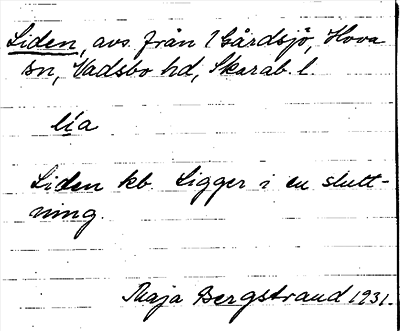 Liden, avs. från 1 Gårdsjö, Hova
sn, Vadsbo hd, Skarab. l.
lía
Liden kb. Ligger i en slutt-
ning.
Maja Bergstrand 1931.